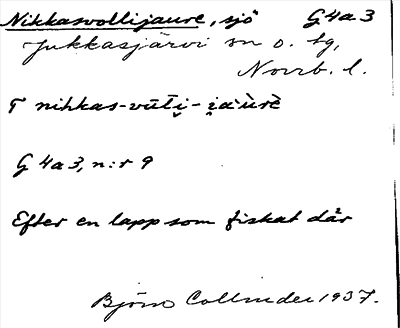 Nikkasvollijaure, sjö G4a3
Jukkasjärvi sn o. tg,
Norrb. l.
T nihkas-vūti̯- i̯a'ùrè
G 4a3, n:r 9
Efter en lapp som fiskat där
Björn Collinder 1937.